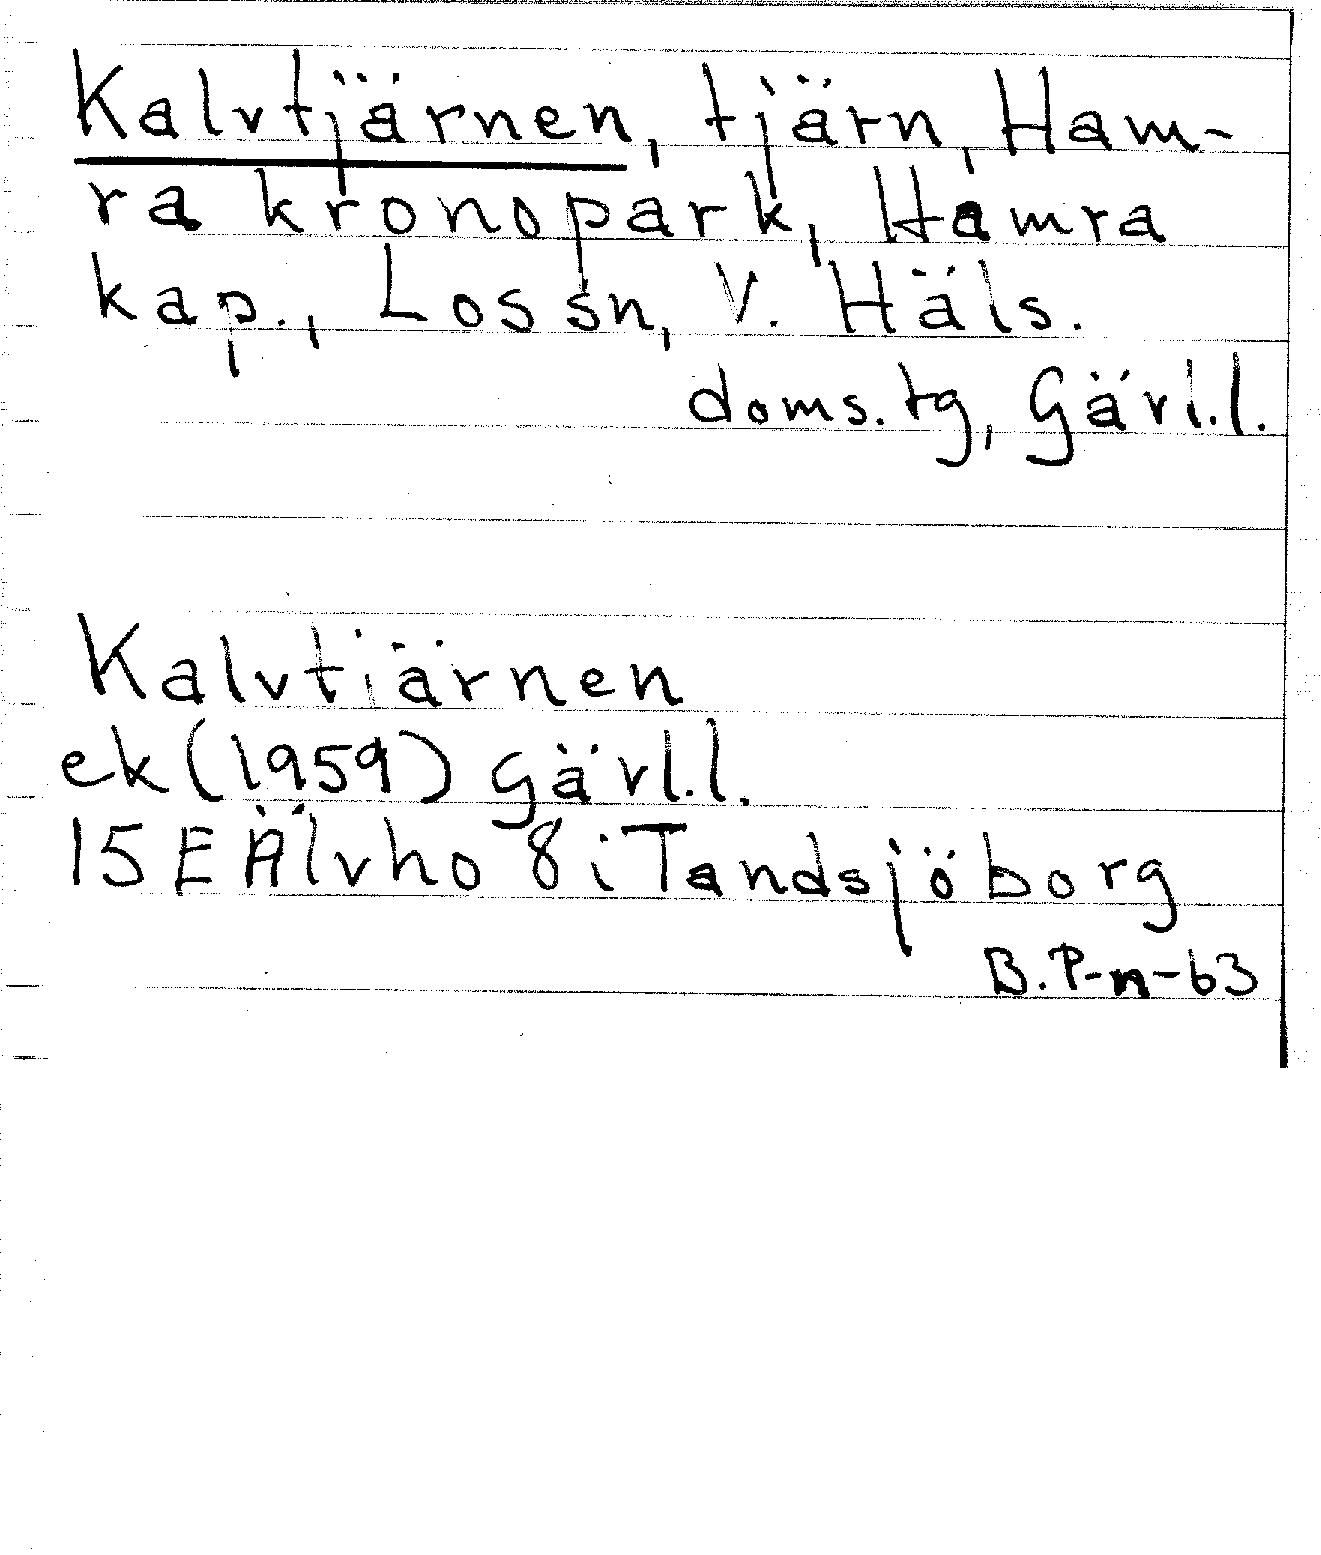 Kalvtjärnen, tjärn, Ham-
ra kronopark, Hamra
kap., Los sn, V. Häls.
doms.tg, Gävl.l.
Kalvtjärnen
ek (1959) Gävl.l.
15E Älvho 8i Tandsjöborg
B.P-n-63